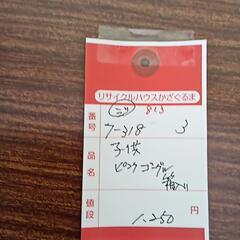 リサイクルハウスかざぐるま
813
番号 7-318 3
品名 子供
ピンクゴーグル
箱入り
値段 1,250 円